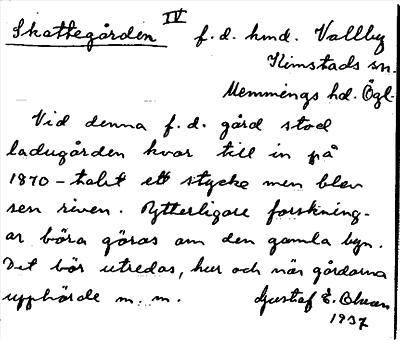 Skattegården IV f.d. hmd. Vallby
Kimstads sn.
Memmings hd. Ögl.
Vid denna f.d. gård stod
ladugården kvar till in på
1870-talet ett stycke men blev
sen riven. Ytterligare forskning-
ar böra göras om den gamla byn.
Det bör utredas, hur och när gårdarna
upphörde m.m. Gustaf E. Olsson
1937